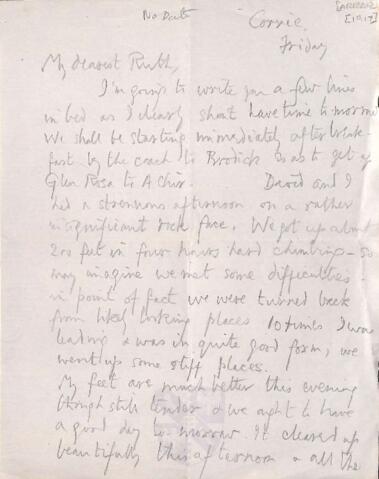 No Date
Corrie
Friday
My dearest Ruth,
I'm going to write you a few lines
in bed as I clearly shan't have time to-morrow
We shall be starting immediately after break-
fast by the coach to Brodick so as to get up
Glen Rosa to A Chir. David and I
had a strenuous afternoon on a rather
insignificant rock face. We got up about
200 feet in four hours hard climbing – so
may imagine we met some difficulties –
in point of fact we were turned back
from likely looking places 10 times I was
leading & was in quite good form, we
went up some stiff places.
My feet are much better this evening
though still tender & we ought to have
a good day to-morrow. It cleared up
beautifully this afternoon & all the